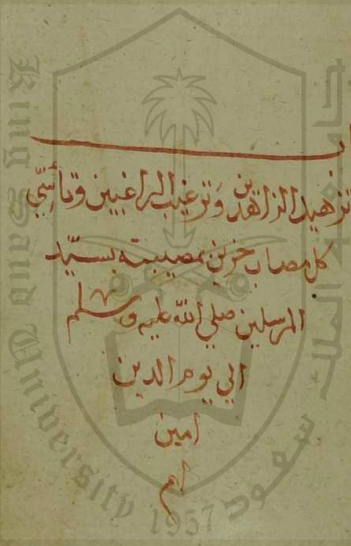 تزهيد الزاهدين وترغيب الراغبين وتأسّي
كل مصاب حزين بمصيبته بسيّد
المرسلين صلي الله عليه وسلم
الي يوم الدين
امين
ام
King Saud University
1957
جامعة الملك سعود